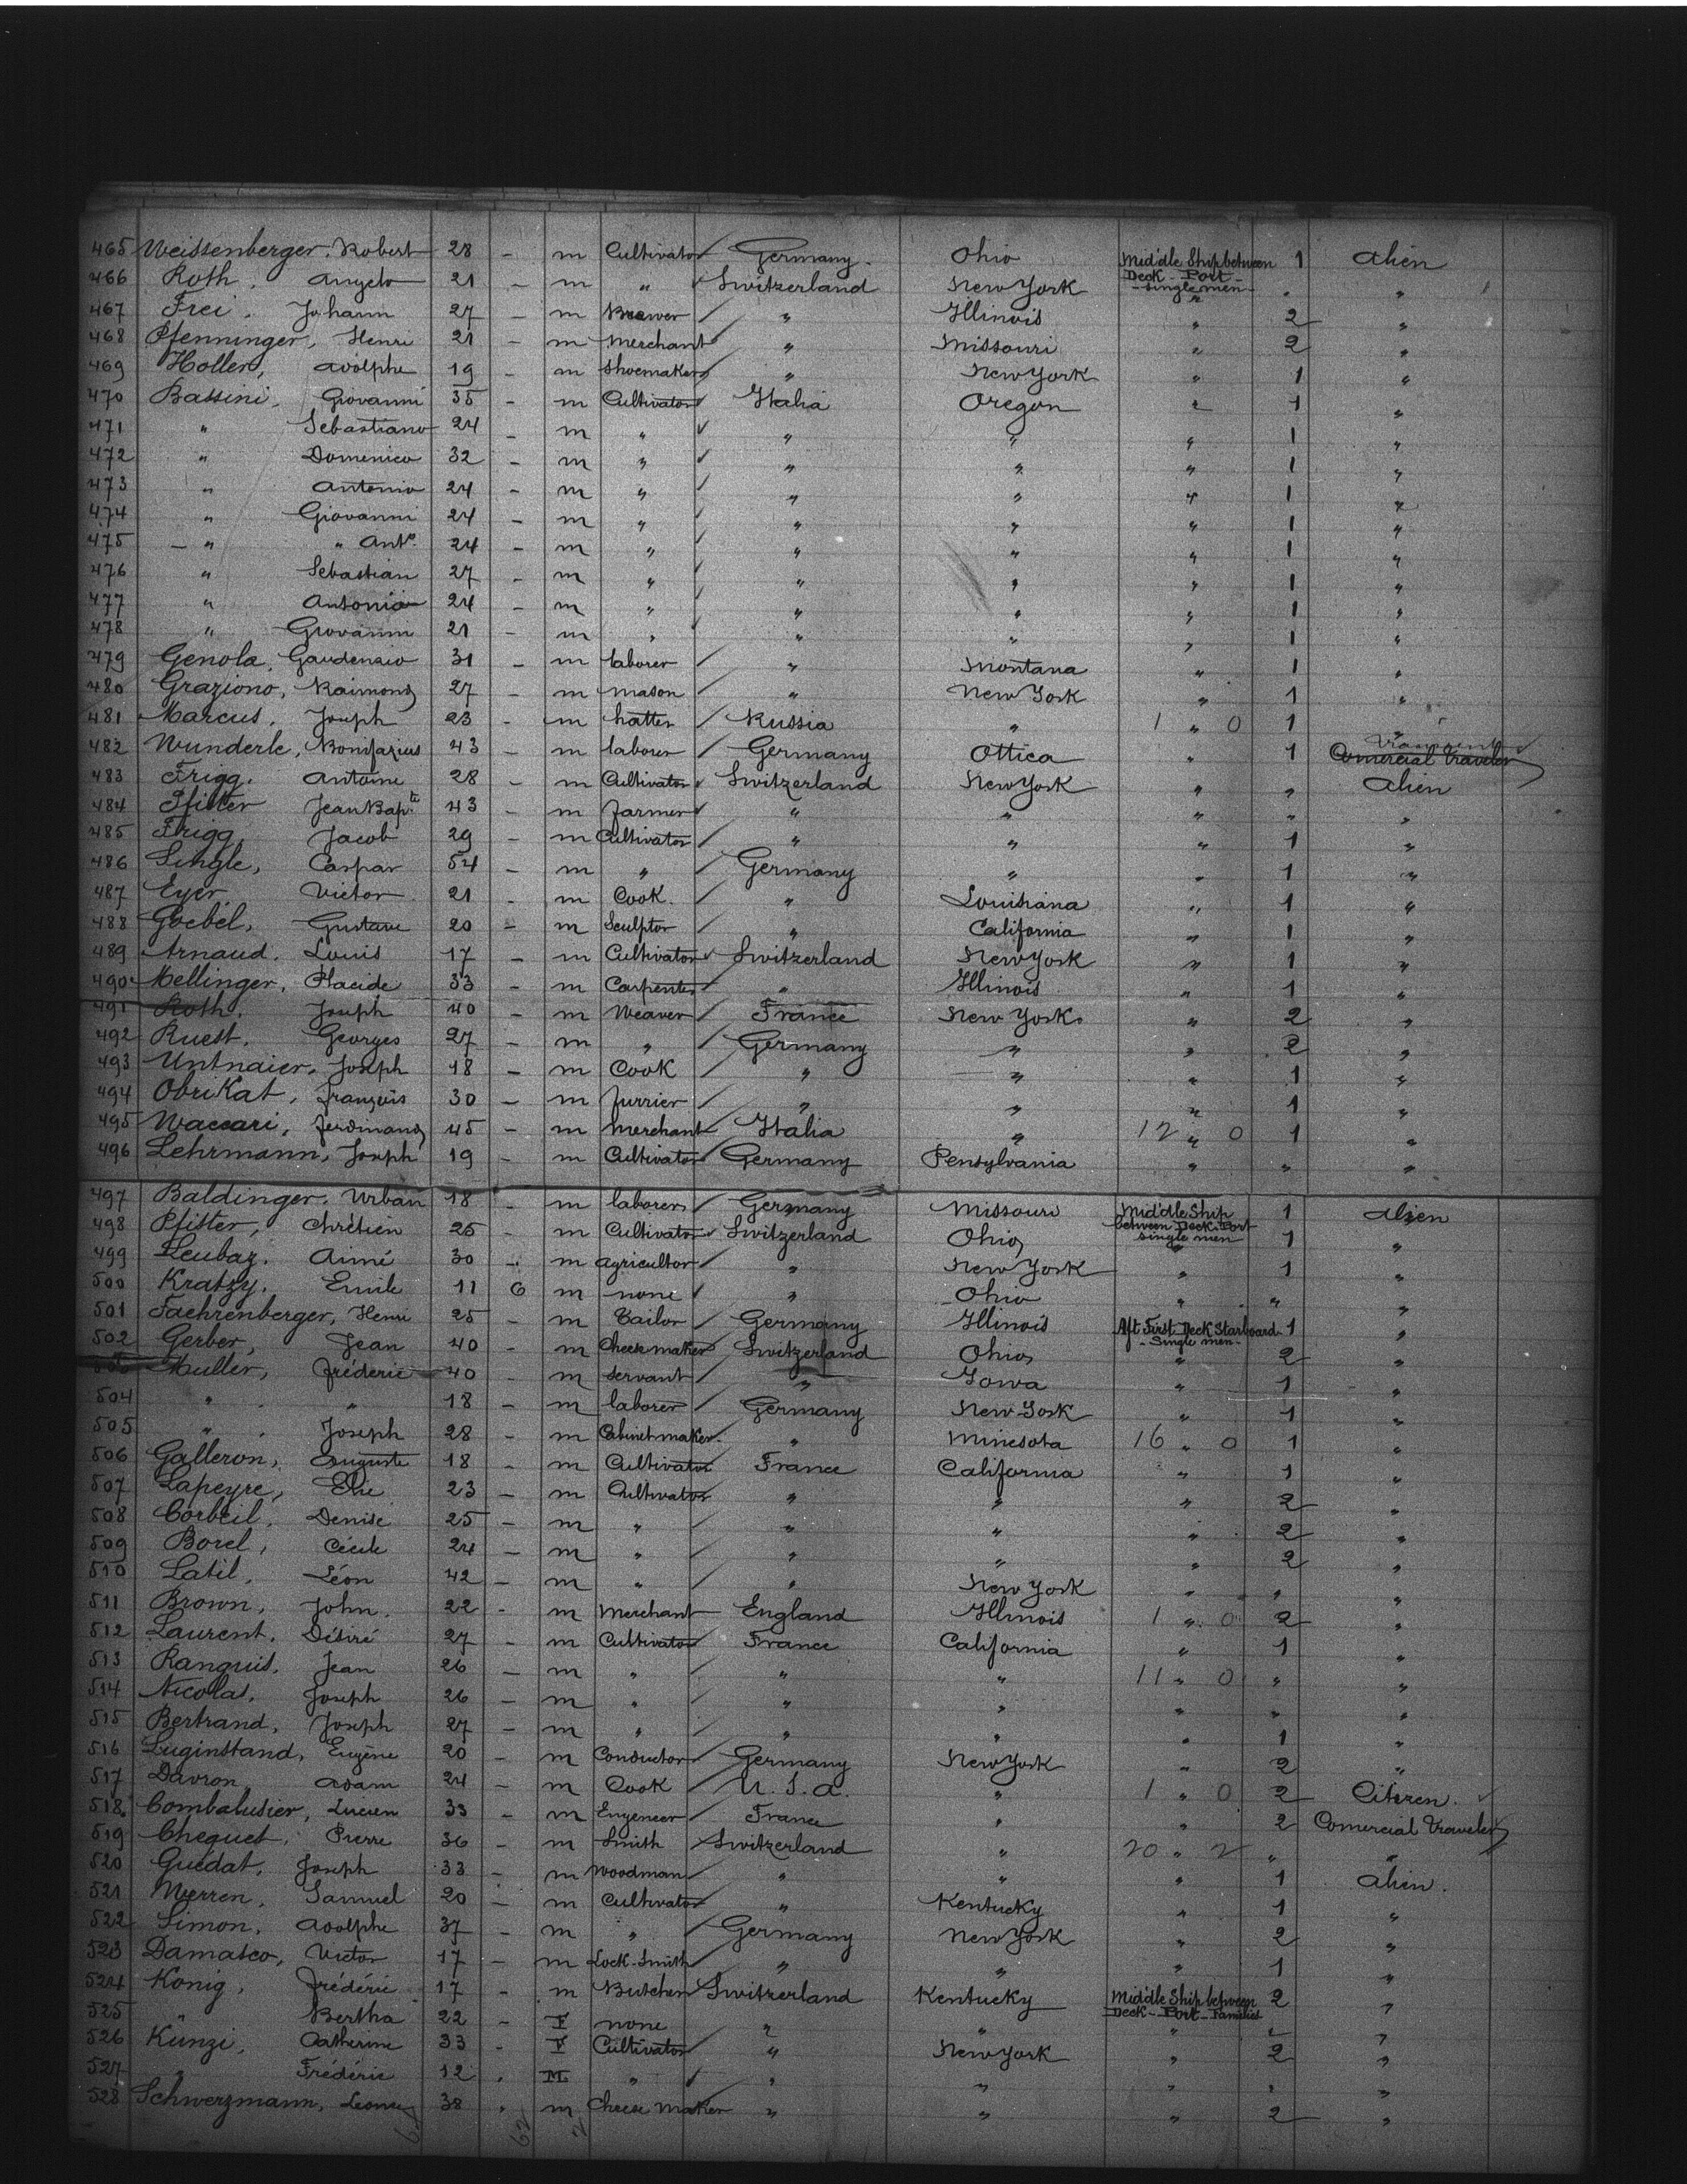 465 Weissenberger, Robert 28 - m Cultivator Germany Ohio Middle Ship between Deck - Port - single men - 1 Alien
466 Roth, Angelo 21 - m " Switzerland New York " " "
467 Frei, Johann 27 - m Brewer " Illinois " 2 "
468 Pfenninger, Henri 21 - m Merchant " Missouri " 2 "
469 Holler, Adolphe 19 - m Shoemaker " New York " 1 "
470 Bassini, Giovanni 35 - m Cultivator Italia Oregon " 1 "
471 " Sebastiano 24 - m " " " " 1 "
472 " Domenico 32 - m " " " " 1 "
473 " Antonio 24 - m " " " " 1 "
474 " Giovanni 24 - m " " " " 1 "
475 - " " Anto. 24 - m " " " " 1 "
476 " Sebastian 27 - m " " " " 1 "
477 " Antonio 24 - m " " " " 1 "
478 " Giovanni 21 - m " " " " 1 "
479 Genola, Gaudenzio 31 - m laborer " Montana " 1 "
480 Graziono, Raimond 27 - m mason " New York " 1 "
481 Marcus, Joseph 23 - m hatter Russia " 1 " 0 1 "
482 Wunderle, Bonifazius 43 - m laborer Germany Ottica " 1 Comercial Traveler
483 Frigg, Antoine 28 - m Cultivator Switzerland New York " " Alien
484 Pfister Jean Bapte 43 - m farmer " " " " "
485 Frigg, Jacob 29 - m Cultivator " " " 1 "
486 Single, Caspar 54 - m " Germany " " 1 "
487 Eyer, Victor 21 - m Cook " Louisiana " 1 "
488 Goebel, Gustave 20 - m Sculptor " California " 1 "
489 Arnaud, Louis 17 - m Cultivator Switzerland New York " 1 "
490 Mellinger, Placide 33 - m Carpenter " Illinois " 1 "
491 Roth, Joseph 40 - m Weaver France New York " 2 "
492 Ruest, Georges 27 - m " Germany " " 2 "
493 Untnaier, Joseph 18 - m Cook " " " 1 "
494 Obrikat, François 30 - m furrier " " " 1 "
495 Waccari, Ferdinand 45 - m Merchant Italia " 12 " 0 1 "
496 Lehrmann, Joseph 19 - m Cultivator Germany Pensylvania " " "
497 Baldinger, Urban 18 - m laborer Germany Missouri Middle Ship between Deck Port single men 1 Alien
498 Pfister, Chrétien 25 - m Cultivator Switzerland Ohio 1 "
499 Leubaz, Aimé 30 - m agricultor " New York " 1 "
500 Kratzy, Emile 11 6 m none " Ohio " " "
501 Faehrenberger, Henri 25 - m Tailor Germany Illinois Aft First Deck Starboard - Single men - 1 "
502 Gerber, Jean 40 - m Cheesemaker Switzerland Ohio " 2 "
503 Muller, Fréderic 40 - m servant " Iowa " 1 "
504 " " 18 - m laborer Germany New York " 1 "
505 " Joseph 28 - m Cabinet maker " Minesota 16 " 0 1 "
506 Galleron, Auguste 18 - m Cultivator France California " 1 "
507 Lapeyre, Elie 23 - m Cultivator " " " 2 "
508 Corbeil, Denise 25 - m " " " " 2 "
509 Borel, Cécile 24 - m " " " " 2 "
510 Latil, Léon 42 - m " " New York " " "
511 Brown, John 22 - m Merchant England Illinois 1 " 0 2 "
512 Laurent, Désiré 27 - m Cultivator France California " 1 "
513 Ranquis, Jean 26 - m " " " 11 " 0 " "
514 Nicolas, Joseph 26 - m " " " " " "
515 Bertrand, Joseph 27 - m " " " " 1 "
516 Luginstand, Eugène 20 - m Conductor Germany New York " 2 "
517 Davron, Adam 24 - m Cook U. S. a. " 1 " 0 2 Citizen.
518 Combalusier, Lucien 33 - m Engeneer France " " 2 Comercial Traveler
519 Chequet, Pierre 36 - m Smith Switzerland " 20 " 2 " "
520 Guedat, Joseph 33 - m Woodman " " " 1 Alien.
521 Myrren, Samuel 20 - m Cultivator " Kentucky " 1 "
522 Simon, Adolphe 37 - m " Germany New York " 2 "
523 Damasco, Victor 17 - m Lock-Smith " " " 1 "
524 Konig, Frédéric 17 - m Butcher Switzerland Kentucky Middle Ship between Deck - Port - Families 2 "
525 " Bertha 22 - F none " " " " "
526 Künzi, Catherine 33 - F Cultivator " New York " 2 "
527 " Frédéric 12 - M " " " " " "
528 Schwerzmann, 38 - m Cheese Maker " " " 2 "